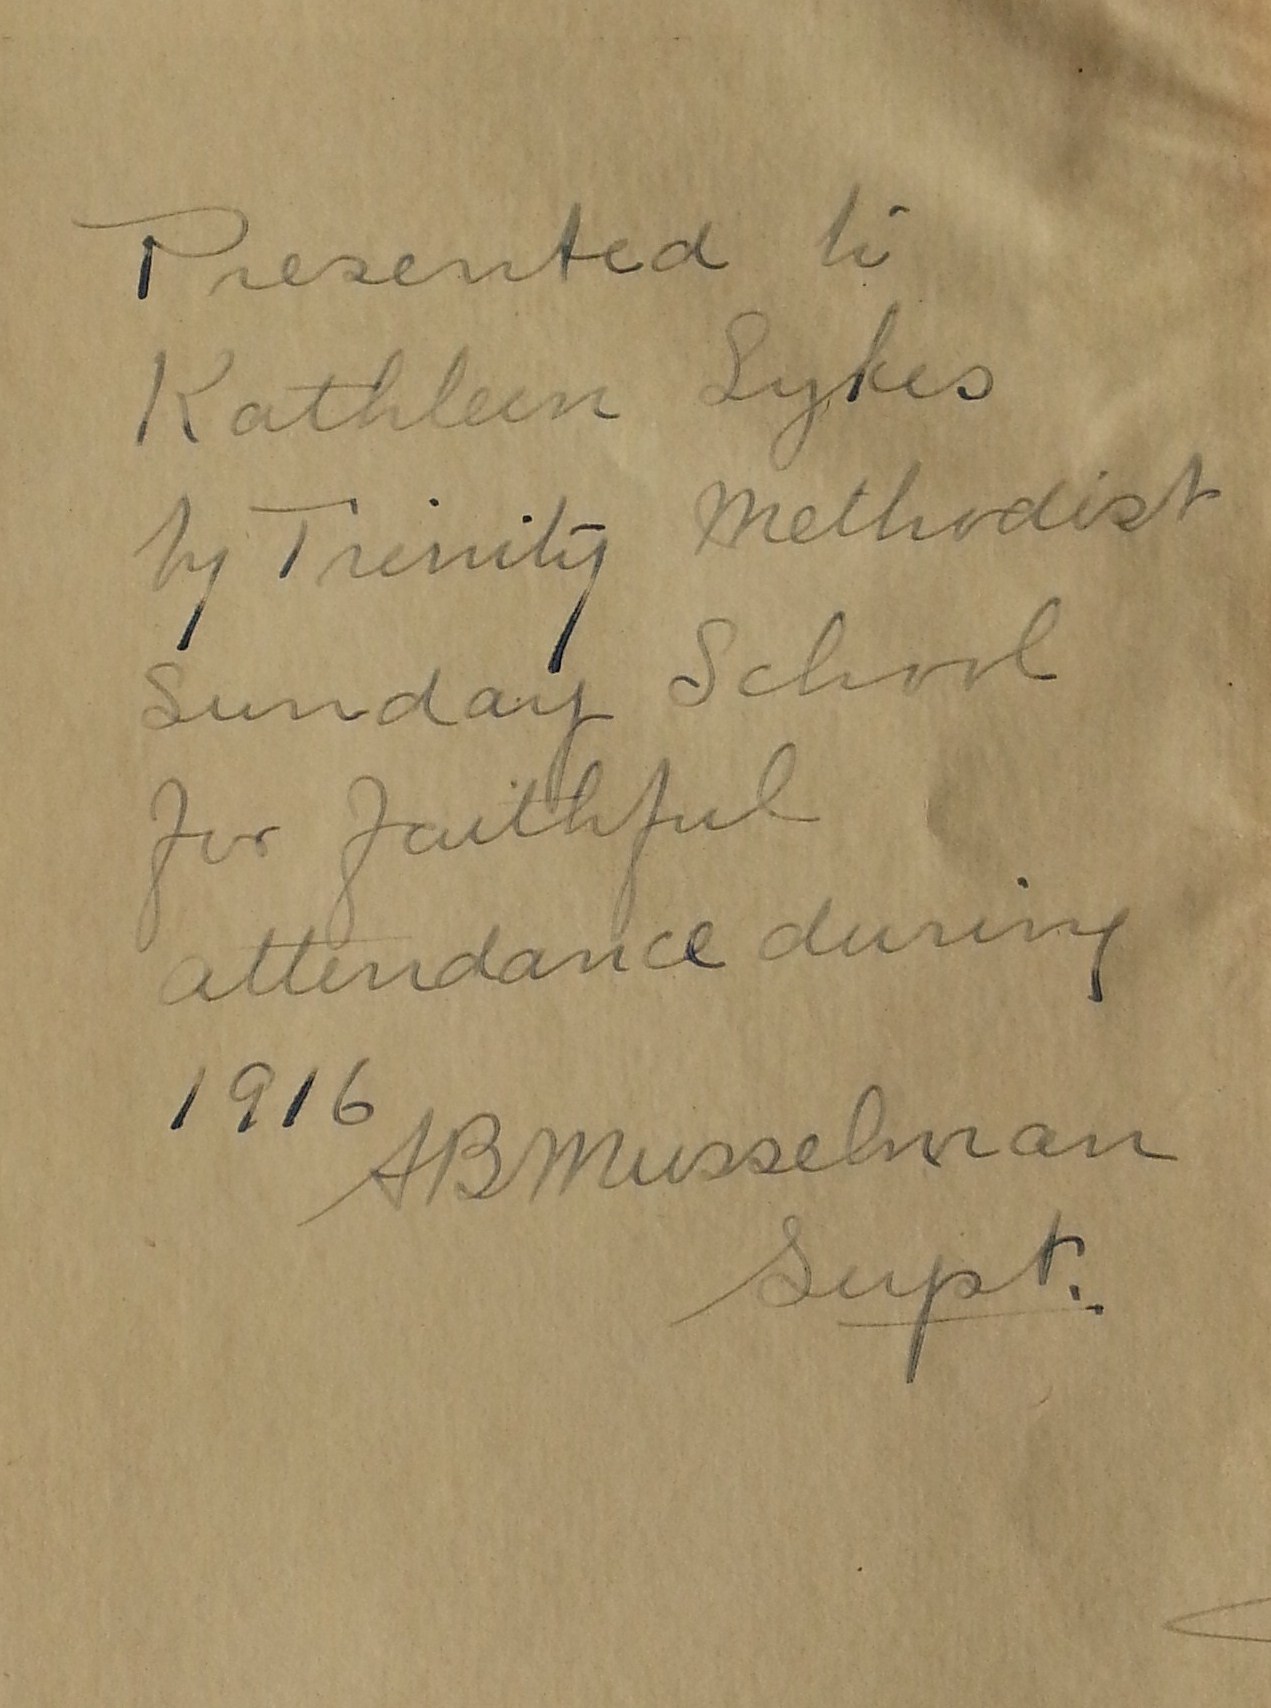 Presented to
Kathleen Sykes
by Trinity Methodist
Sunday School
for faithful
attendance during
1916
AB Musselman
Supt.